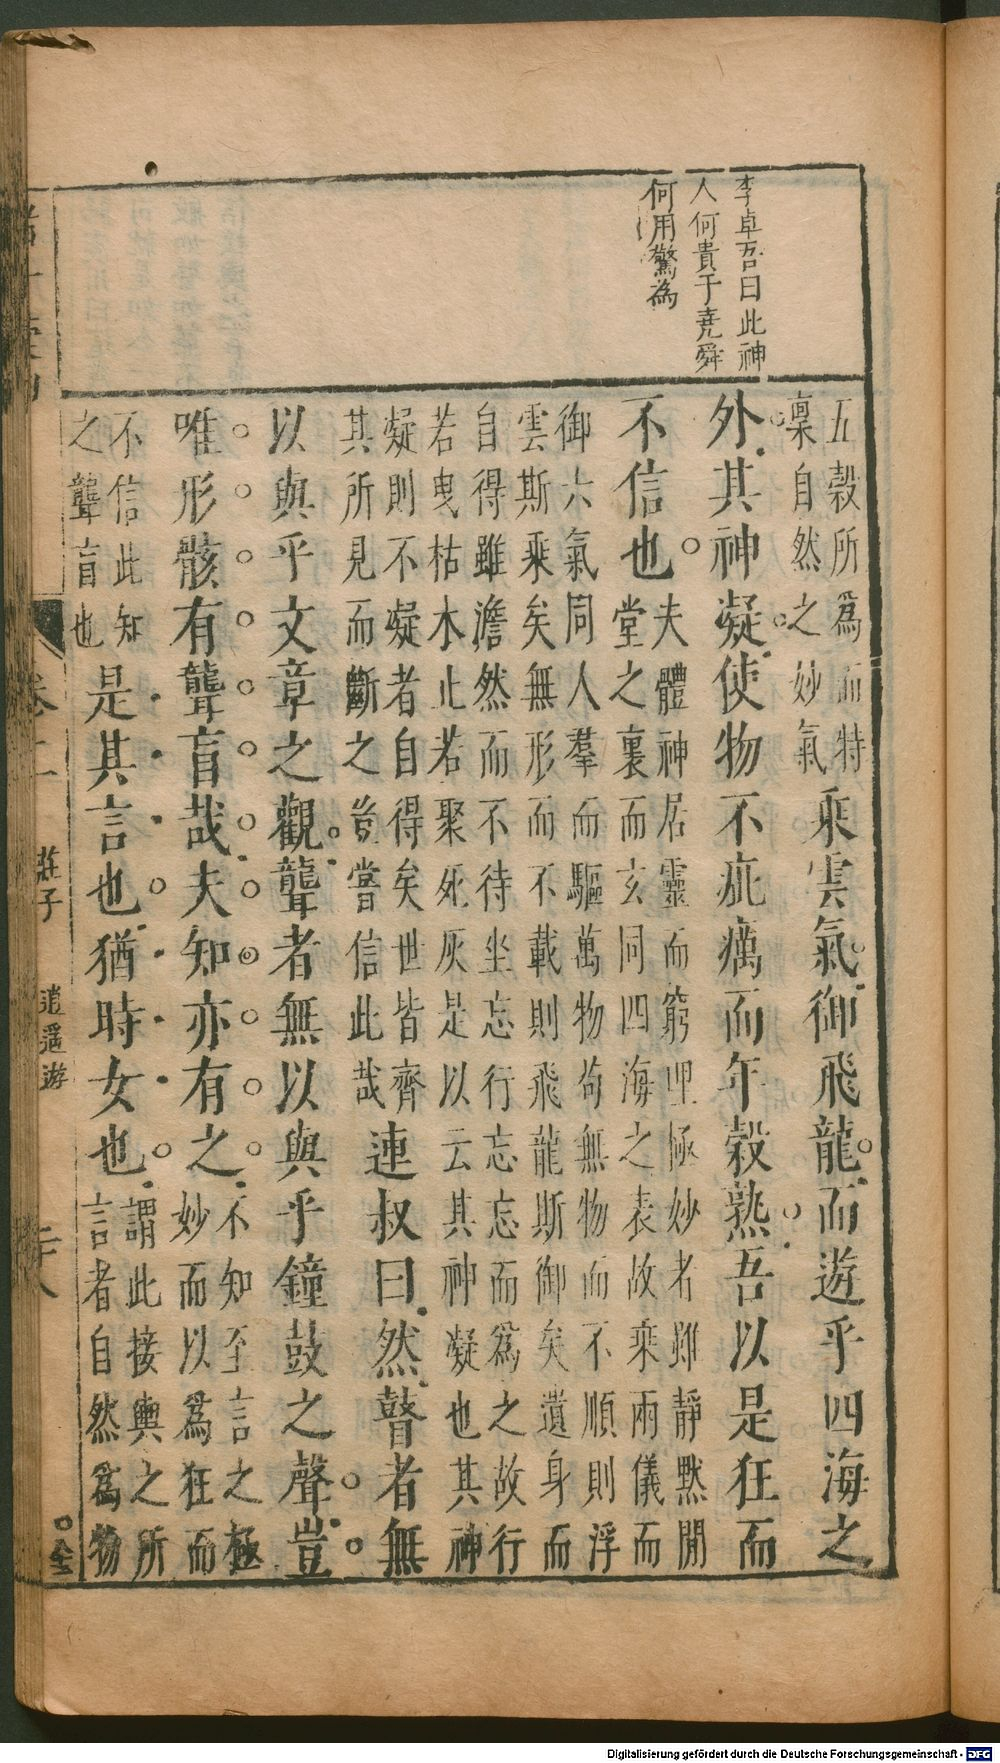 李卓吾曰此神
人何貴于堯舜
何用驚為
五穀所為而特
稟自然之妙氣
乘雲氣御飛龍而遊乎四海之
外其神凝使物不疵癘而年穀熟吾以是狂而
不信也
夫體神居靈而窮理極妙者雖靜默閒
堂之裏而玄同四海之表故乘兩儀而
御六氣同人羣而驅萬物苟無物而不順則浮
雲斯乘矣無形而不載則飛龍斯御矣遺身而
自得雖澹然而不待坐忘行忘忘而爲之故行
若曳枯木止若聚死灰是以云其神凝也其神
凝則不凝者自得矣世皆齊
其所見而斷之豈嘗信此哉
連叔曰然瞽者無
以與乎文章之觀聾者無以與乎鐘鼓之聲豈
唯形骸有聾盲哉夫知亦有之
不知至言之極
妙而以爲狂而
不信此知
之聾盲也
是其言也猶時女也
謂此接輿之所
言者自然爲物
卷二 莊子 逍遥遊
Digitalisierung gefördert durch die Deutsche Forschungsgemeinschaft - DFG